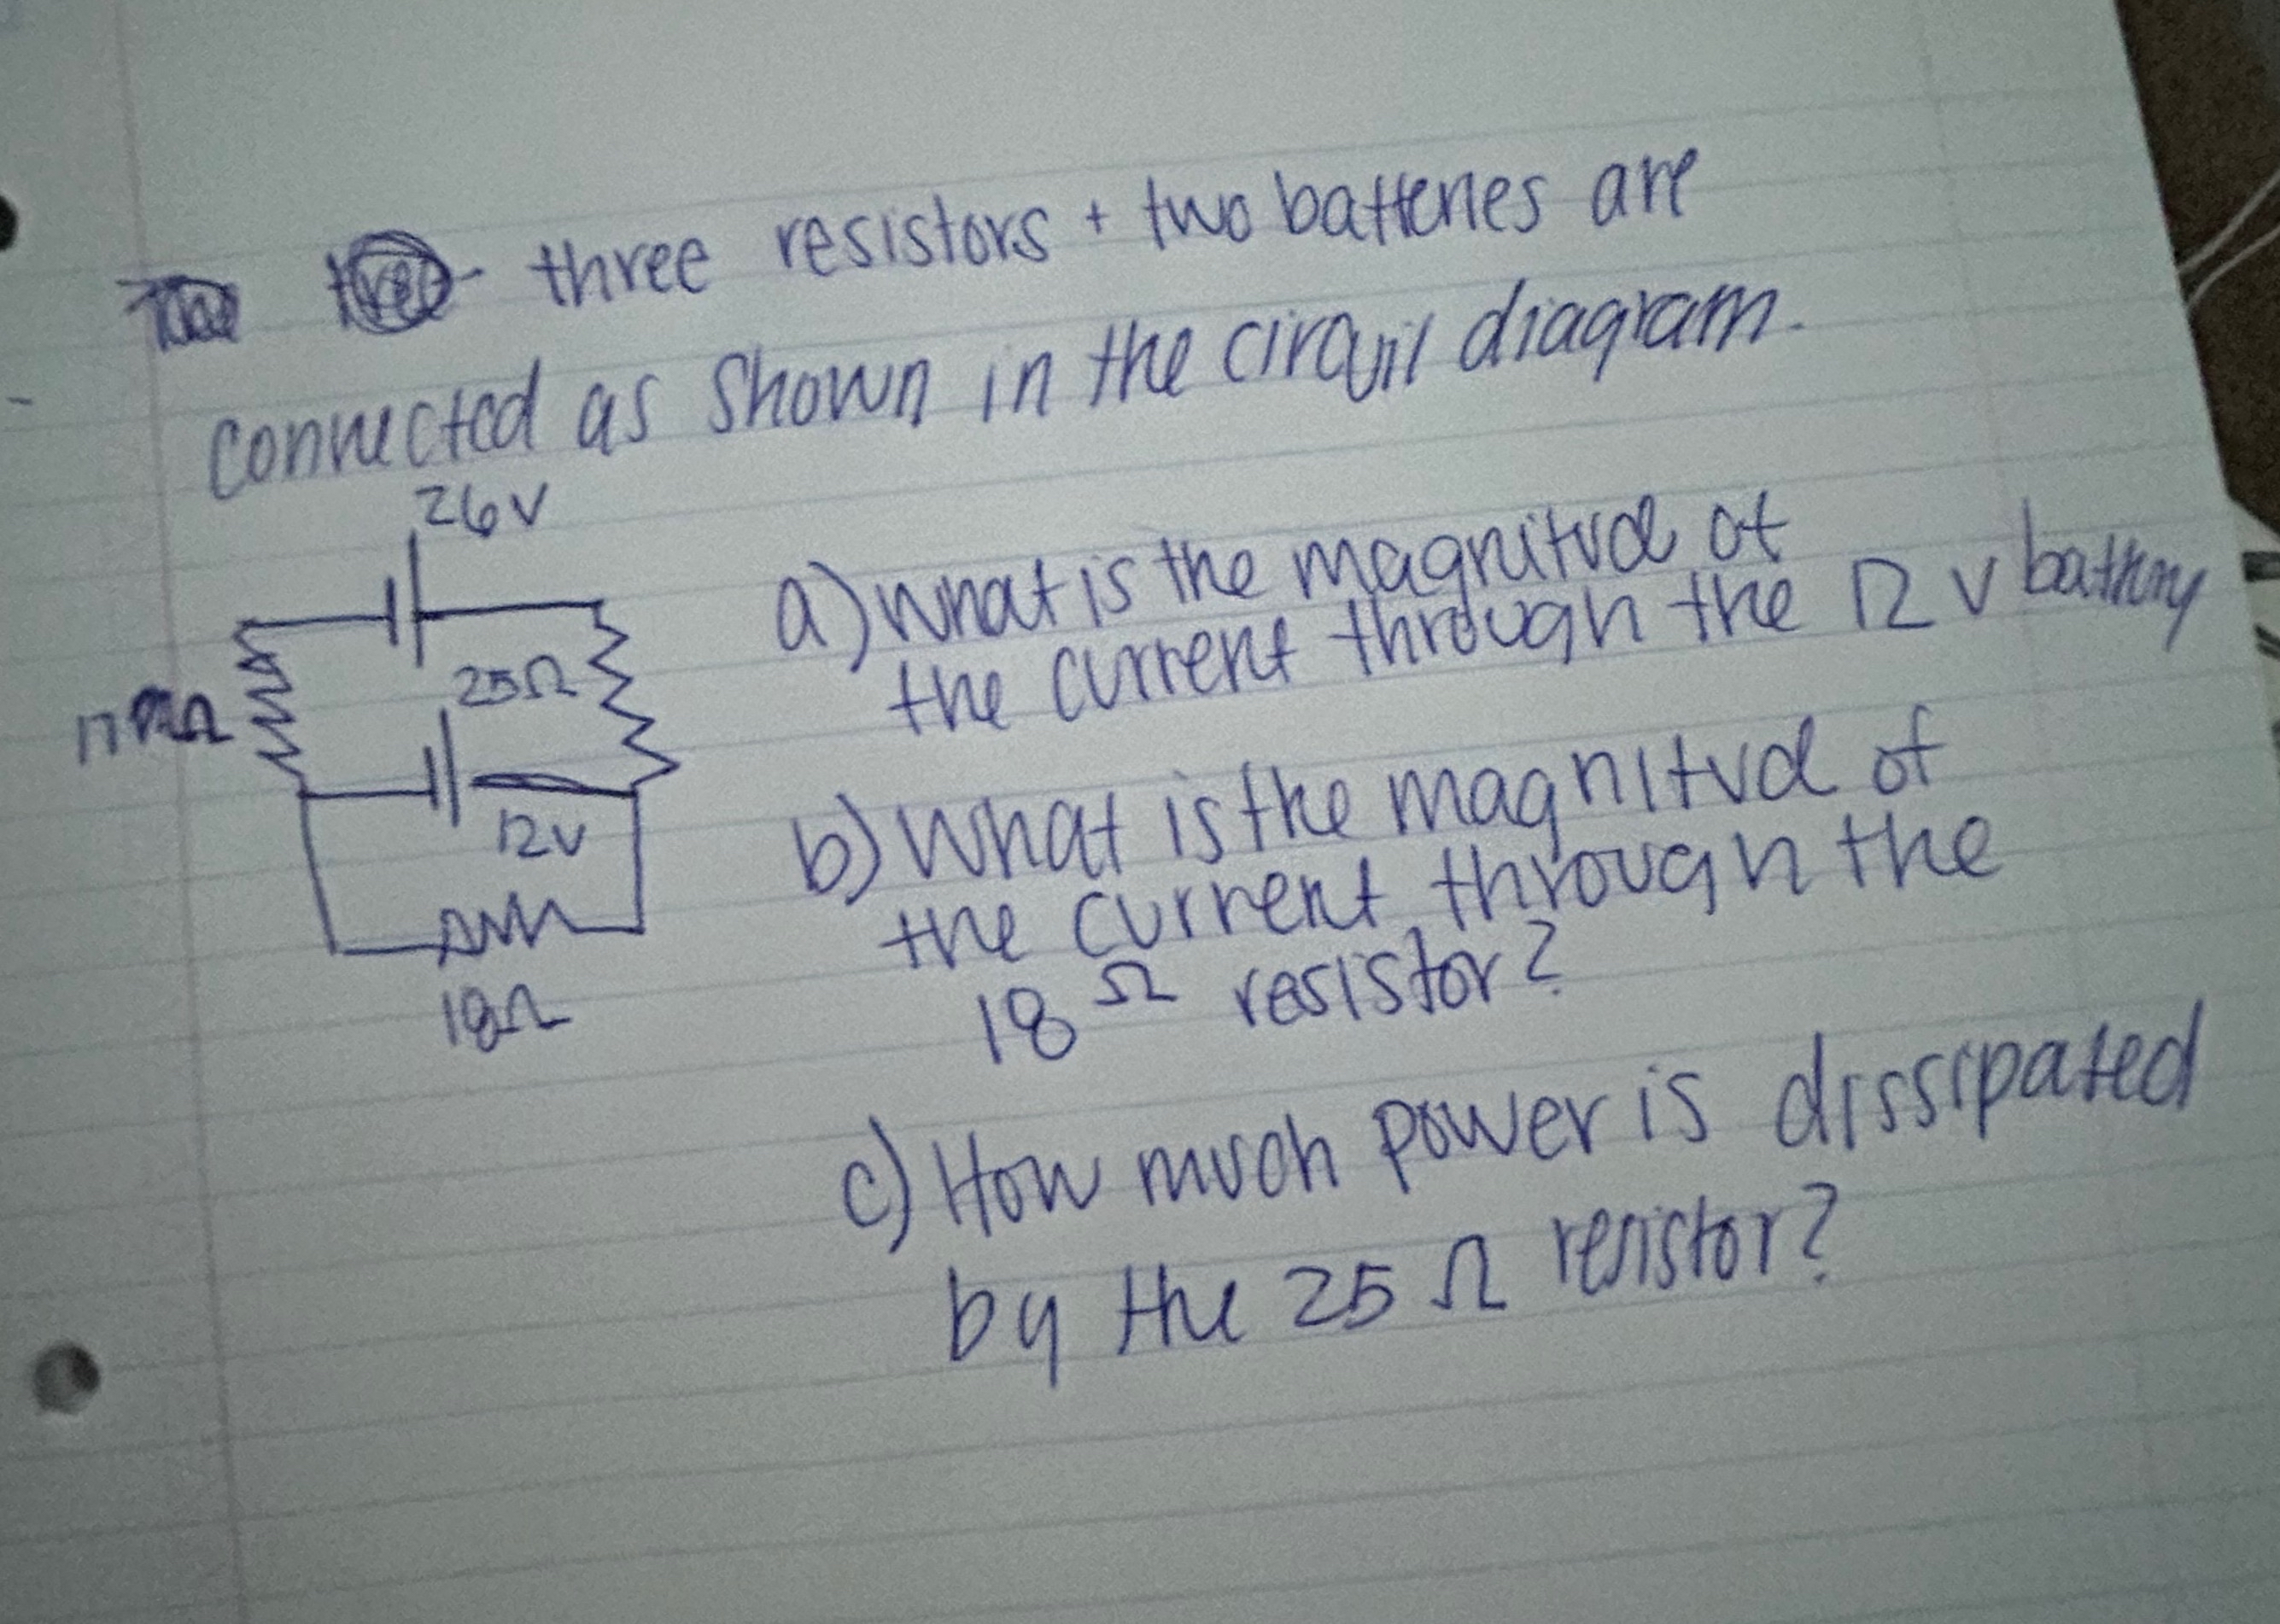 three resistors + two batteries are
connected as shown in the circuit diagram.
26V
25Ω
17 Ω
12V
18Ω
a) what is the magnitud of
the current through the 12 V battery
b) What is the magnitud of
the current through the
18 Ω resistor?
c) How much power is dissipated
by the 25 Ω resistor?